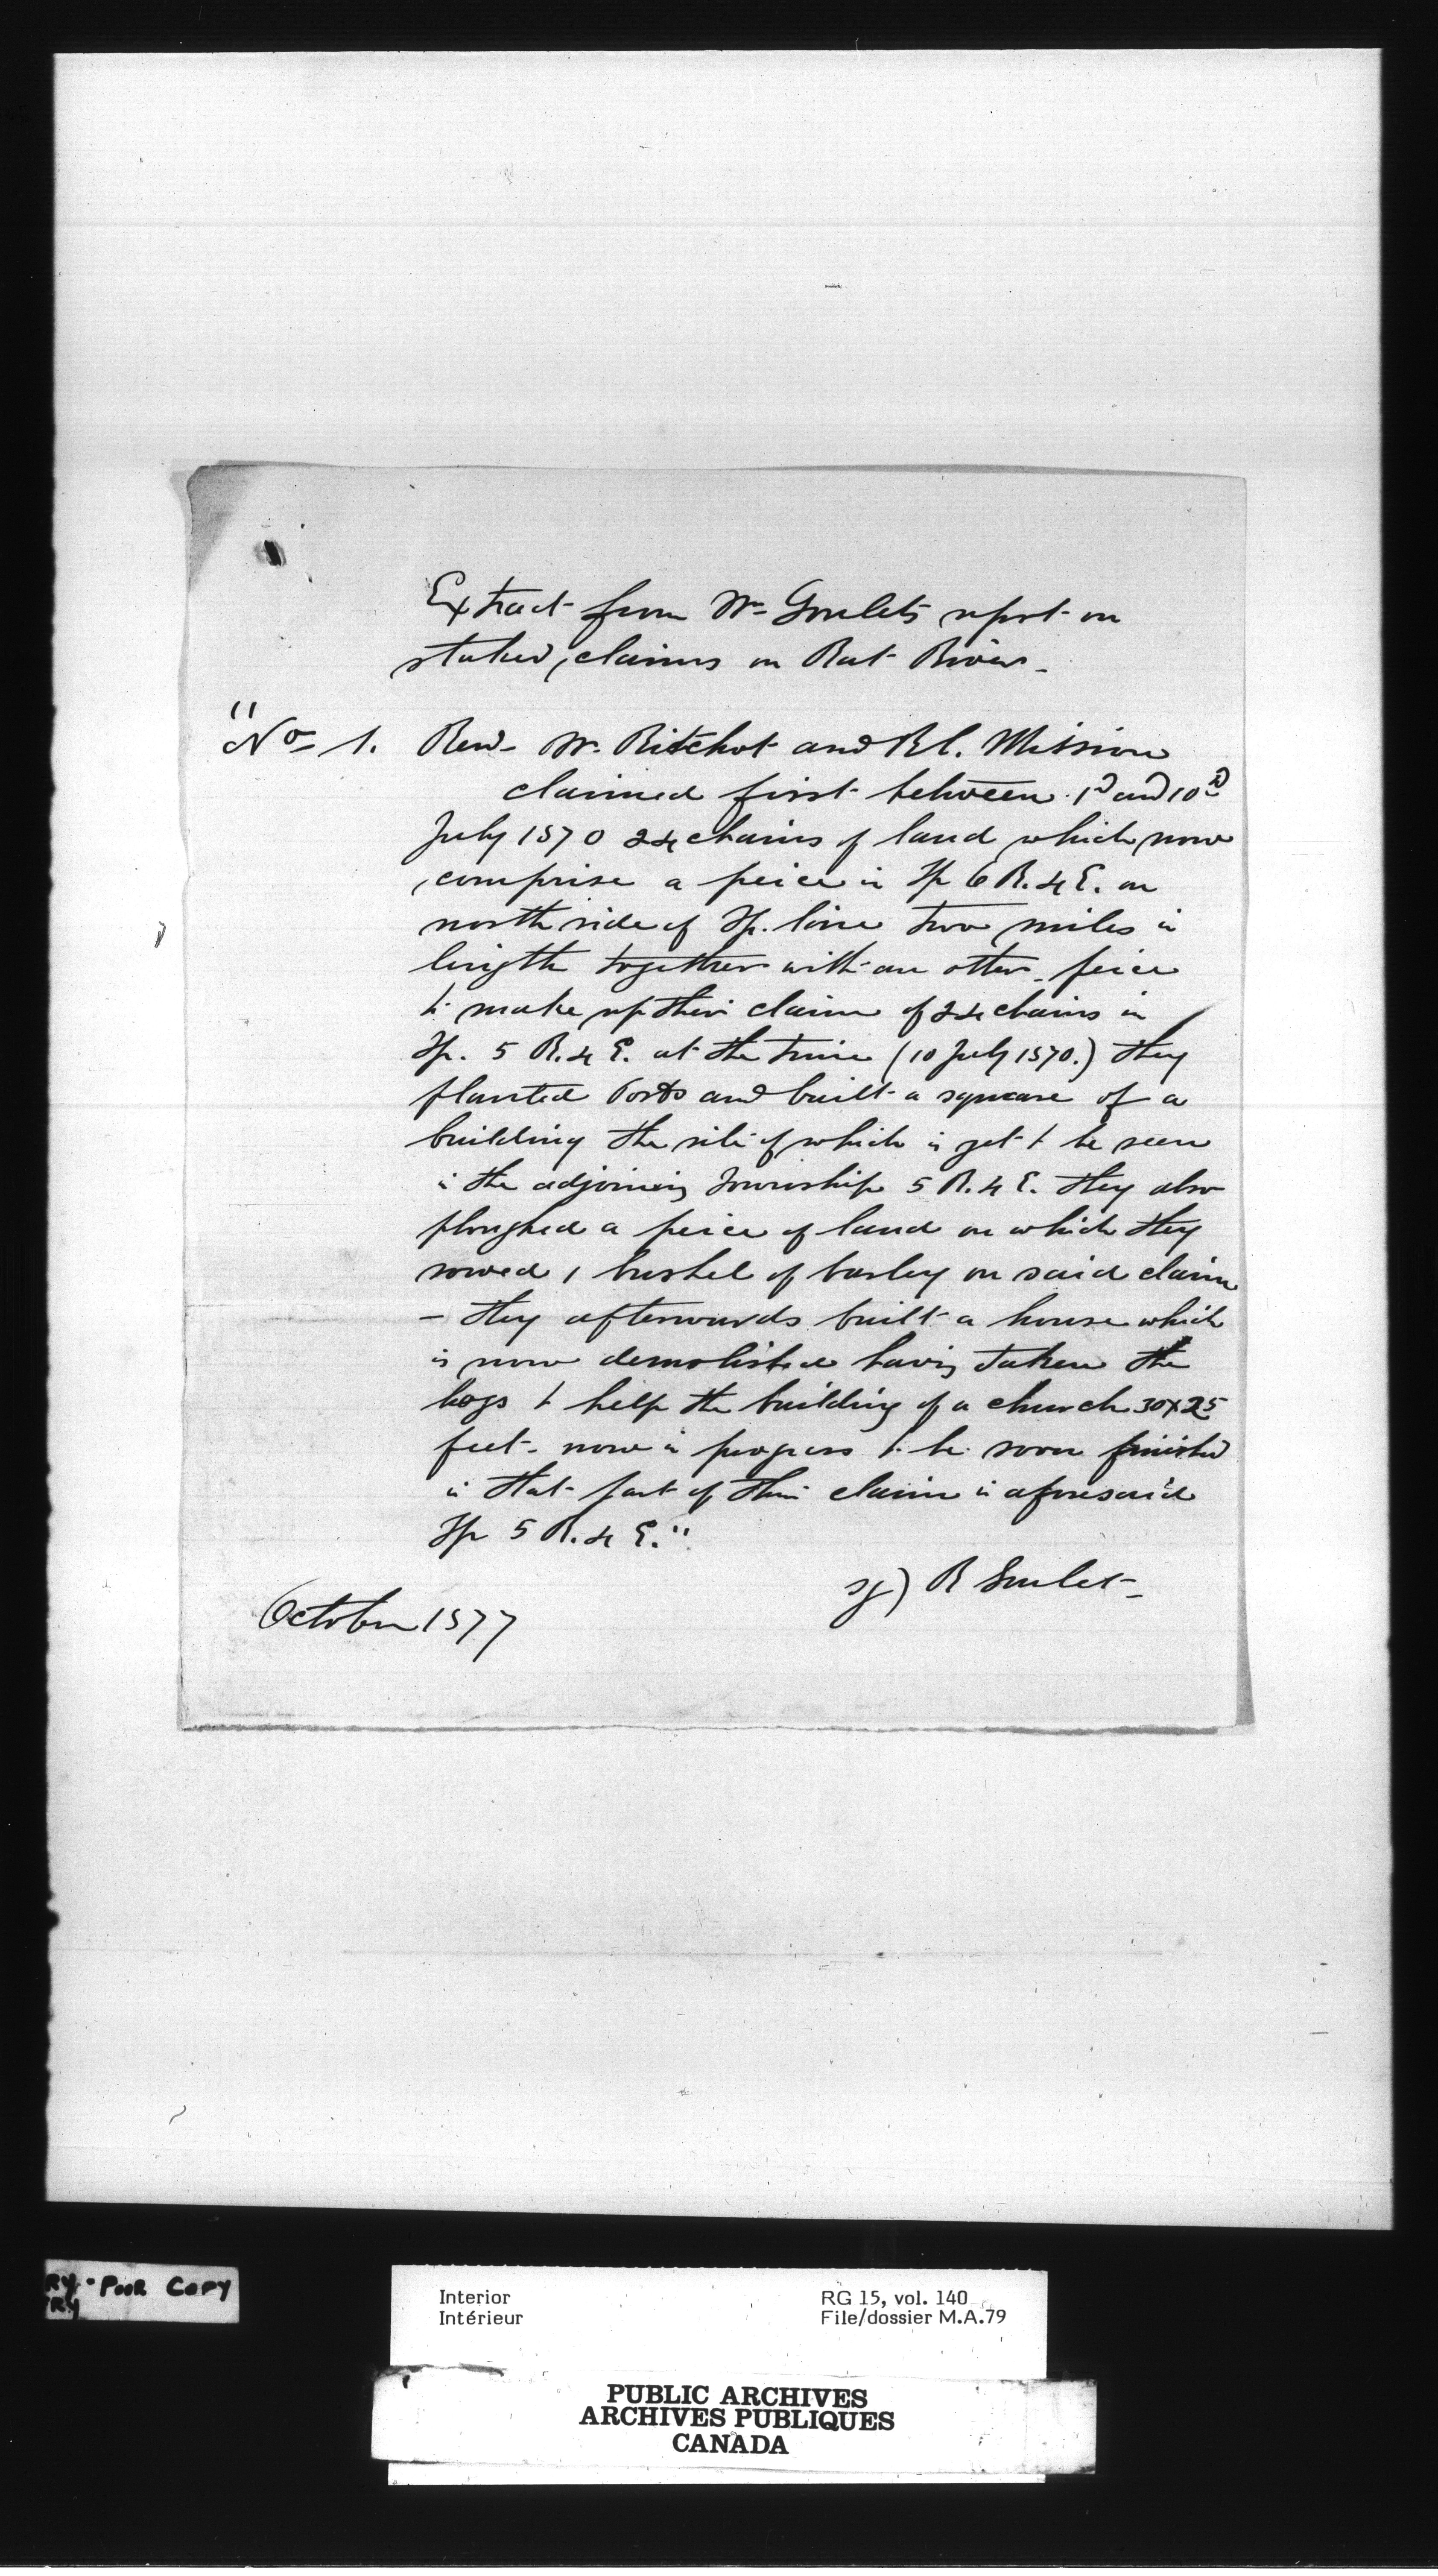 Extract from Mr Goulets report on
staked, claims on Rat River -
"No 1. Revd Mr. Ritchot and R C. Mission
claimed first between 1st and 10th
July 1870 24 chains of land which now
comprise a peice in Tp 6 R. 4 E. on
north side of Tp. line two miles in
length together with an other peice
to make up their claim of 24 chains in
Tp. 5 R. 4 E. at the time (10 July 1870.) they
planted posts and built a square of a
building the site of which is yet to be seen
in the adjoining Township 5 R. 4 E. they also
ploughed a peice of land on which they
sowed 1 bushel of barley on said claim
- they afterwards built a house which
is now demolished having taken the
logs to help the building of a church 30x25
feet - now in progress to be soon finished
in that part of their claim in aforesaid
Tp 5 R. 4 E."
sg) R Goulet -
October 1877
RY - POOR COPY
RY
Interior RG 15, vol. 140
Intérieur File/dossier M.A.79
PUBLIC ARCHIVES
ARCHIVES PUBLIQUES
CANADA